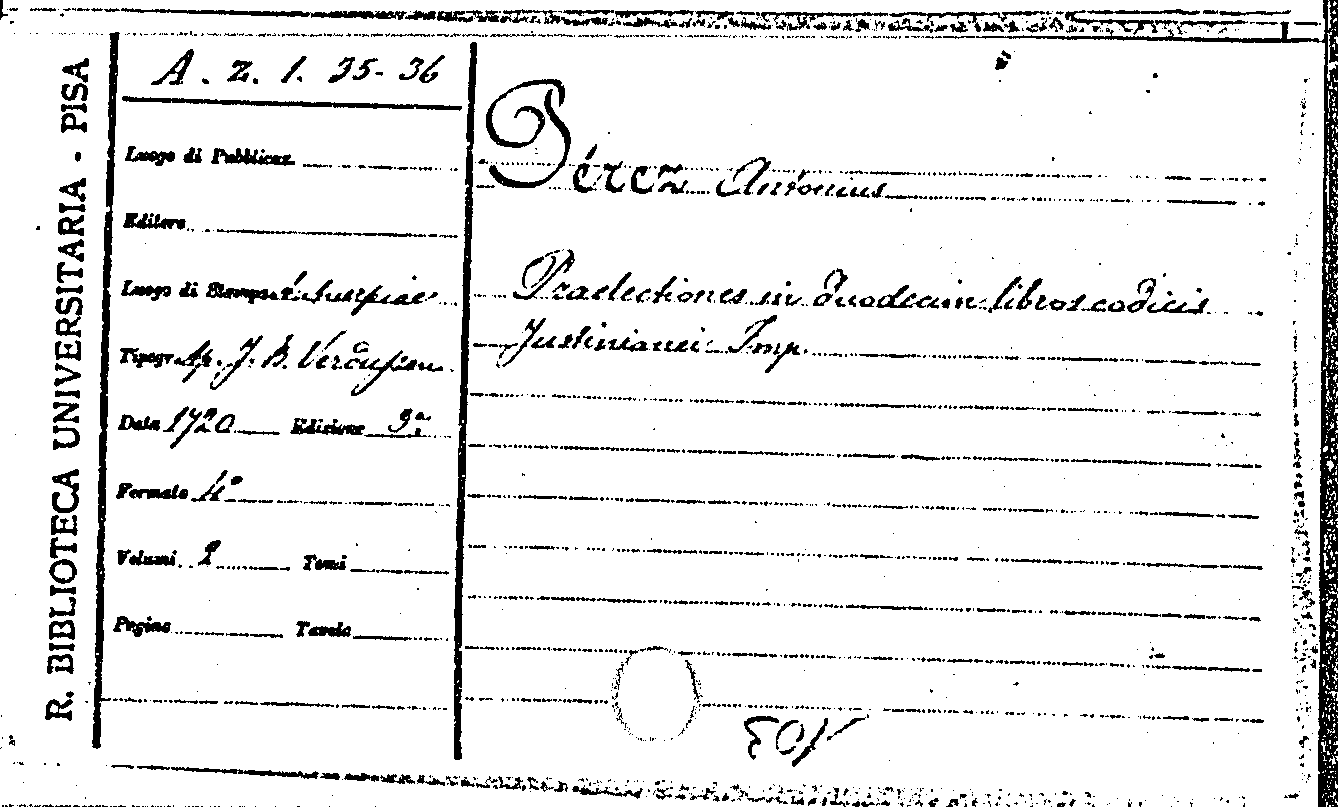 R. BIBLIOTECA UNIVERSITARIA - PISA
A. z. 1. 35-36
Luogo di Pubblicaz.
Editore
Luogo di Stampa Antuerpiae
Tipogr. Ap. J. B. Verdussen
Data 1720 Edizione 9ª
Formato 4°
Volumi 2 Tomi
Pagine Tavole
Pérez Antonius
Praelectiones in duodecim libros codicis
Justinianei Imp.
103